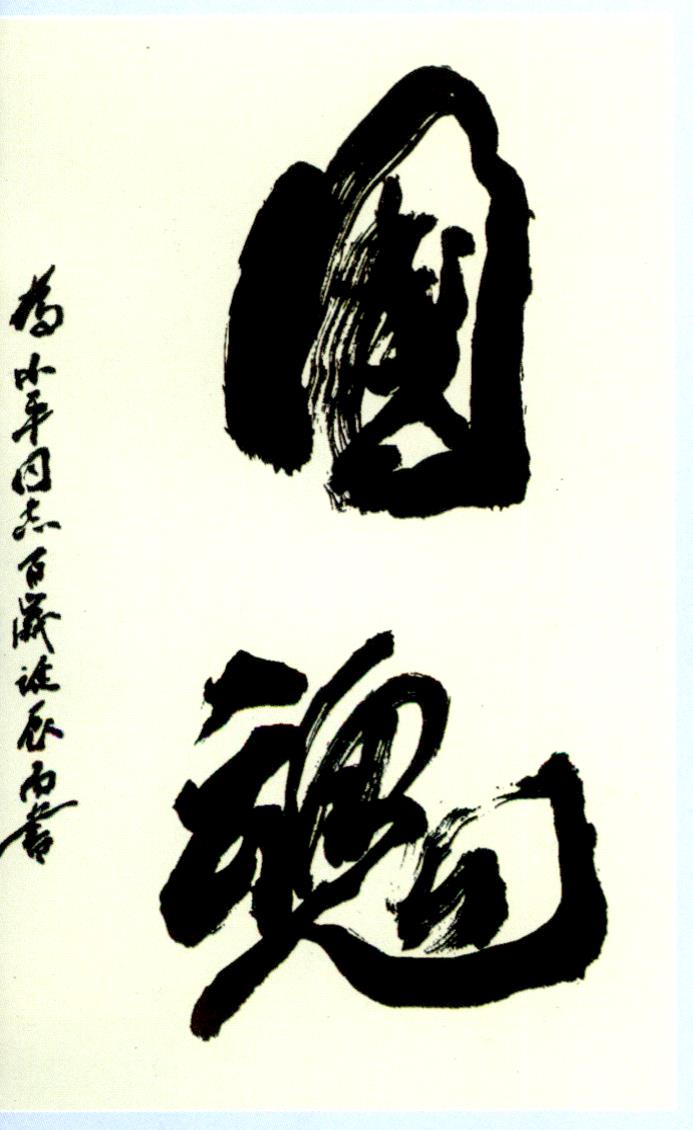 國魂
为小平同志百歲誕辰而書